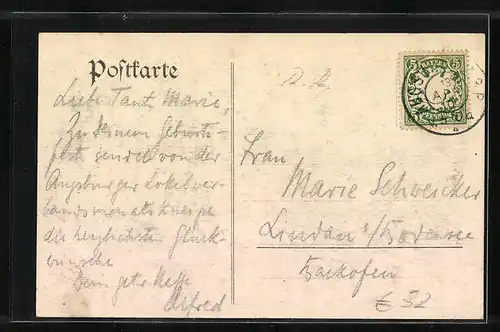 Postkarte
Liebe Tant Marie,
Zu Deinem Geburts-
feste sendet von der
Augsburger Lokalver-
bandsmonatskneipe
die herzlichsten Glück-
wünsche
Dein getr. Neffe
Alfred
Frau
Marie Schweicker
Lindau i/Bodensee
5 BAYERN 5
PFENNIG
€ 32